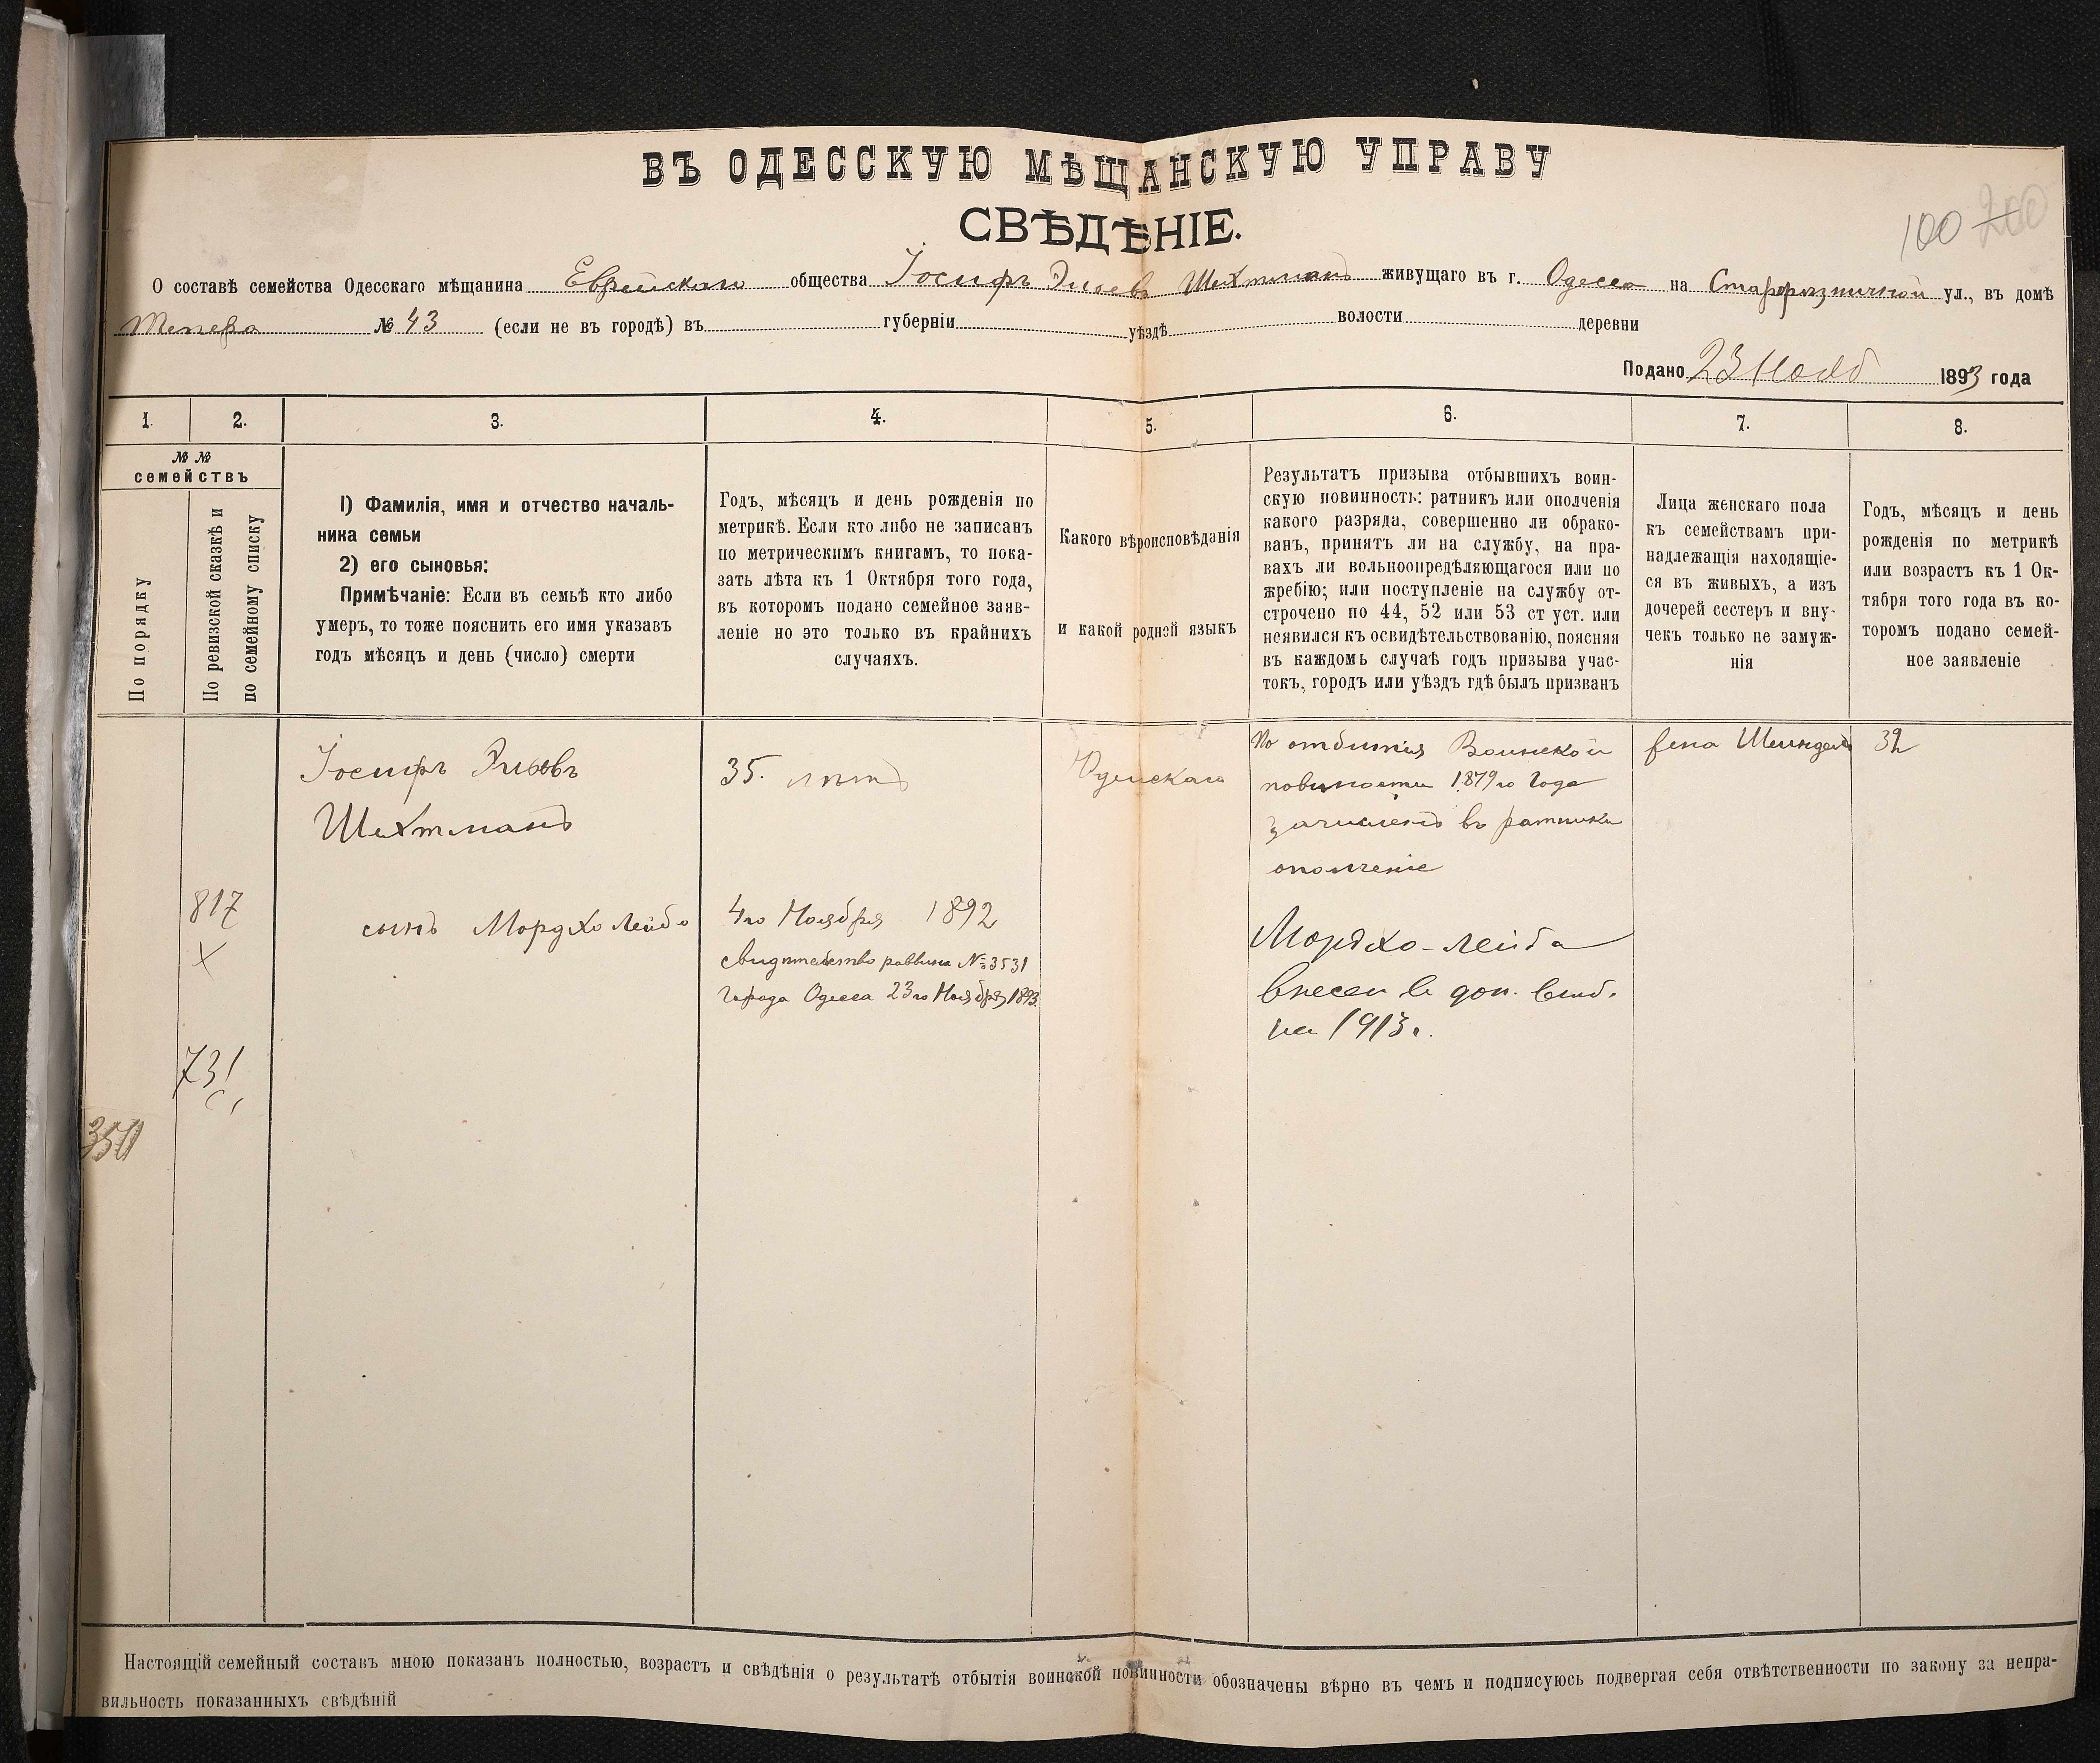 ВЪ ОДЕССКУЮ МѢЩАНСКУЮ УПРАВУ
СВѢДѢНІЕ.
100 200
О составѣ семейства Одесскаго мѣщанина Еврейскаго общества Іосифъ Эльевъ Шехтманъ живущаго въ г. Одесса на Старорѣзничной ул., въ домѣ
№ 43 (если не въ городѣ) въ губерніи уѣздѣ волости деревни
Подано 23 Нояб 1893 года
1. 2. 3. 4. 5. 6. 7. 8.
№ №
семействъ
По порядку
По ревизской сказкѣ и
по семейному списку
1) Фамилія, имя и отчество началь-
ника семьи
2) его сыновья:
Примѣчаніе: Если въ семьѣ кто либо
умеръ, то тоже пояснить его имя указавъ
годъ мѣсяцъ и день (число) смерти
Годъ, мѣсяцъ и день рожденія по
метрикѣ. Если кто либо не записанъ
по метрическимъ книгамъ, то пока-
зать лѣта къ 1 Октября того года,
въ которомъ подано семейное заяв-
леніе но это только въ крайнихъ
случаяхъ.
Какого вѣроисповѣданія
и какой родной языкъ
Результатъ призыва отбывшихъ воин-
скую повинность: ратникъ или ополченія
какого разряда, совершенно ли обрако-
ванъ, принятъ ли на службу, на пра-
вахъ ли вольноопредѣляющагося или по
жребію; или поступленіе на службу от-
строчено по 44, 52 или 53 ст уст. или
неявился къ освидѣтельствованію, поясняя
въ каждомъ случаѣ годъ призыва учас-
токъ, городъ или уѣздъ гдѣ былъ призванъ
Лица женскаго пола
къ семействамъ при-
надлежащія находящіе-
ся въ живыхъ, а изъ
дочерей сестеръ и вну-
чекъ только не замуж-
нія
Годъ, мѣсяцъ и день
рожденія по метрикѣ
или возрастъ къ 1 Ок-
тября того года въ ко-
торомъ подано семей-
ное заявленіе
Іосифъ Эльевъ
Шехтманъ
35. лѣтъ
Іудейскаго
По отбытія Воинской
повиности 1879го Года
зачисленъ въ ратники
ополченіе
жена Шейндель
32
817
X
сынъ Мордхо Лейбо
4го Ноября 1892
свидѣтельство раввина № 3531
Города Одесса 23го Ноября 1893
Мордхо-Лейба
внесен в доп.
на 1913г.
731
Настоящій семейный составъ мною показанъ полностью, возрастъ и свѣдѣнія о результатѣ отбытія воинской повинности обозначены вѣрно въ чемъ и подписуюсь подвергая себя отвѣтственности по закону за непра-
вильность показанныхъ свѣдѣній